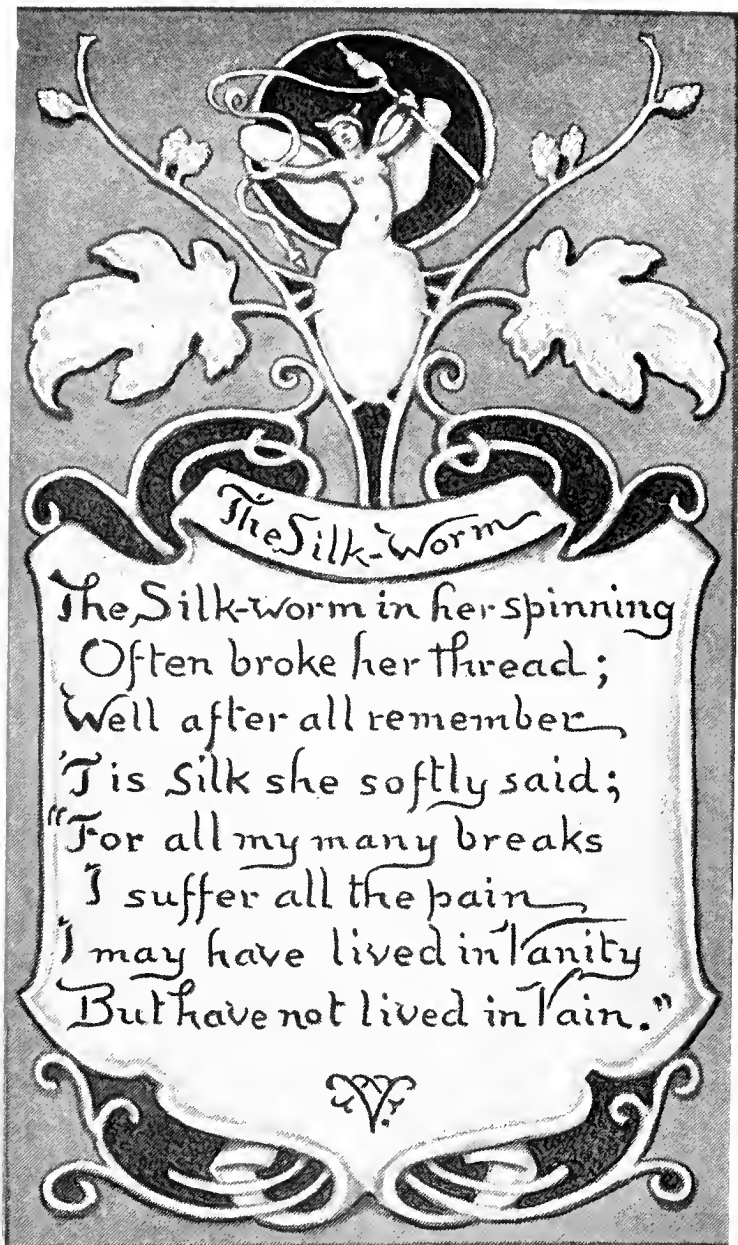 The Silk-Worm
The Silk-worm in her spinning
Often broke her thread;
Well after all remember
'Tis Silk she softly said;
"For all my many breaks
I suffer all the pain
I may have lived in Vanity
But have not lived in Vain."